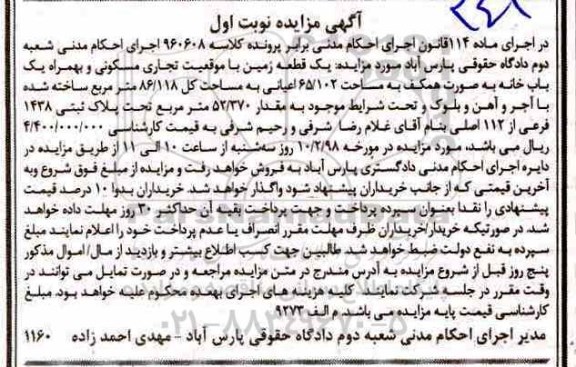 آگهی مزایده نوبت اول
در اجرای ماده ۱۱۴قانون اجرای احکام مدنی برابر پرونده کلاسه ۹۶۰۶۰۸ اجرای احکام مدنی شعبه
دوم دادگاه حقوقی پارس آباد مورد مزایده: یک قطعه زمین با موقعیت تجاری مسکونی و بهمراه یک
باب خانه به صورت همکف به مساحت ۶۵/۱۰۲ اعیانی به مساحت کل ۸۶/۱۱۸ متر مربع ساخته شده
با آجر و آهن و بلوک و تحت شرایط موجود به مقدار ۵۲/۳۷۰ متر مربع تحت پلاک ثبتی ۱۴۳۸
فرعی از ۱۱۲ اصلی بنام آقای غلام رضا شرفی و رحیم شرفی به قیمت کارشناسی ۴/۴۰۰/۰۰۰/۰۰۰
ریال می باشد، مورد مزایده در مورخه ۱۰/۲/۹۸ روز سه‌شنبه از ساعت ۱۰ الی ۱۱ از طریق مزایده در
دایره اجرای احکام مدنی دادگستری پارس آباد به فروش خواهد رفت و مزایده از مبلغ فوق شروع وبه
آخرین قیمتی که از جانب خریداران پیشنهاد شود واگذار خواهد شد. خریداران بدوا ۱۰ درصد قیمت
پیشنهادی را نقدا بعنوان سپرده پرداخت و جهت پرداخت بقیه آن حداکثر ۳۰ روز مهلت داده خواهد
شد. در صورتیکه خریدار/خریداران ظرف مهلت مقرر انصراف یا عدم پرداخت خود را اعلام نمایند مبلغ
سپرده به نفع دولت ضبط خواهد شد. طالبین جهت کسب اطلاع بیشتر و بازدید از مال/اموال مذکور
پنج روز قبل از شروع مزایده به آدرس مندرج در متن مزایده مراجعه و در صورت تمایل می توانند در
وقت مقرر در جلسه شرکت نمایند کلیه هزینه های اجرای بعهده محکوم علیه خواهد بود. مبلغ
کارشناسی قیمت پایه مزایده می باشد. م الف ۱۲۷۳
مدیر اجرای احکام مدنی شعبه دوم دادگاه حقوقی پارس آباد - مهدی احمد زاده ۱۱۶۰
۰۲۱-۸۸۳۴۹۶۷۰-۵